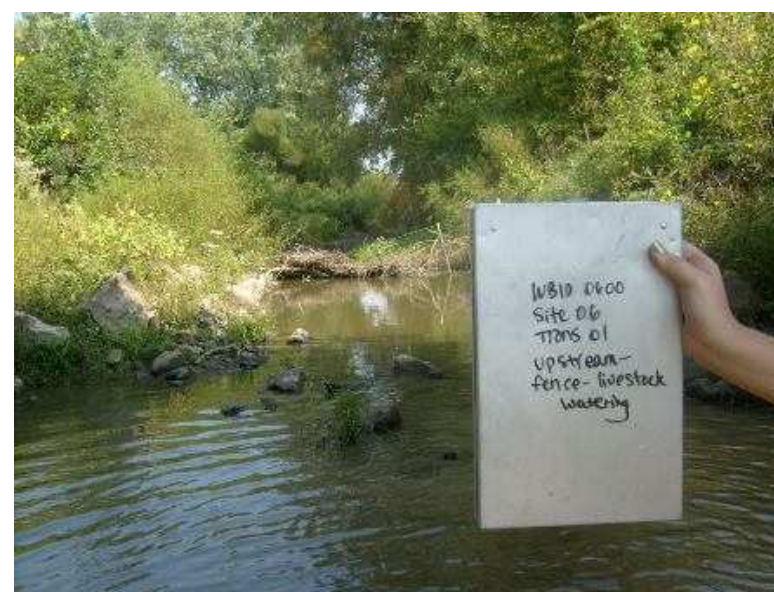 WBID 0600
Site 06
Trans 01
upstream-
fence-livestock
watering